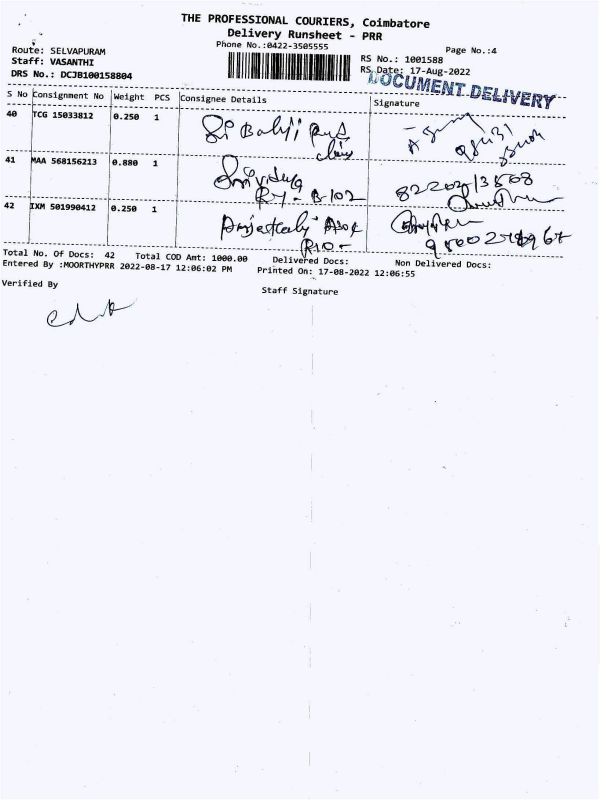 THE PROFESSIONAL COURIERS, Coimbatore
Delivery Runsheet - PRR
Phone No.:0422-3505555
Page No.:4
Route: SELVAPURAM
Staff: VASANTHI
DRS No.: DCJB100158804
RS No.: 1001588
RS Date: 17-Aug-2022
DOCUMENT DELIVERY
S No Consignment No Weight PCS Consignee Details Signature
40 TCG 15033812 0.250 1 Sri Balaji
41 MAA 568156213 0.880 1
B-102
42 IXM 501990412 0.250 1
Total No. Of Docs: 42 Total COD Amt: 1000.00 Delivered Docs: Non Delivered Docs:
Entered By :MOORTHYPRR 2022-08-17 12:06:02 PM Printed On: 17-08-2022 12:06:55
Verified By
Staff Signature